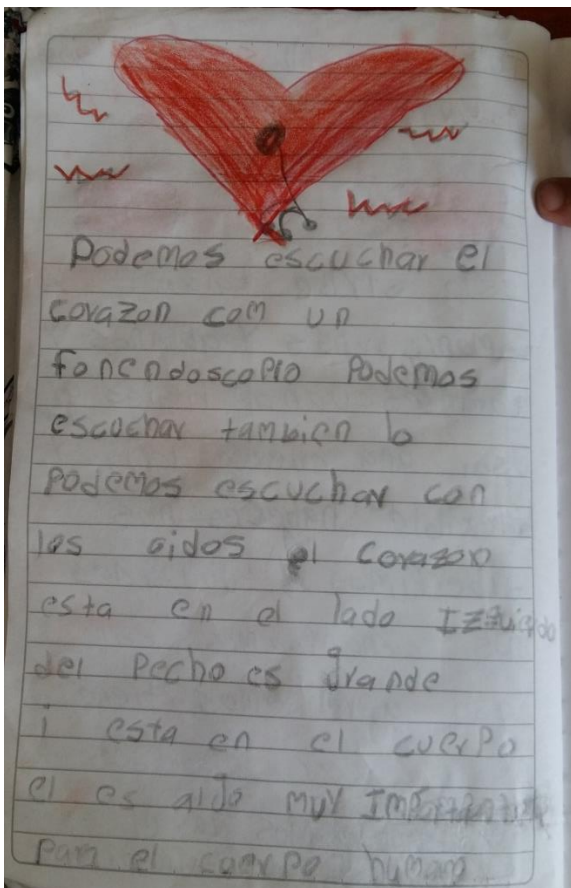 Podemos escuchar el
corazon com un
fonendoscopio Podemos
escuchar tambien lo
Podemos escuchar con
los oidos el corazon
esta en el lado Izquierdo
del Pecho es grande
i esta en el cuerpo
el es algo muy Importante
Para el cuerpo humano